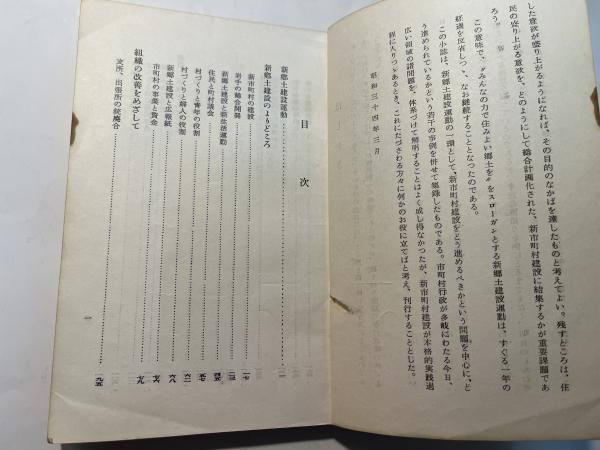 した意欲が盛り上がるようになれば、その目的のなかばを達したものと考えてよい。残すところは、住
民の盛り上がる意欲を、どのようにして綜合計画化された、新市町村建設に結集するかが重要課題であ
ろう。
この意味で、〃みんなの力で住みよい郷土を〃をスローガンとする新郷土建設運動は、すぐる一年の
経過を反省しつつ、なお継続することとなつたのである。
この小誌は、新郷土建設運動の一環として、新市町村建設をどう進めるべきかという問題を中心に、ど
う進められているかという若干の事例を併せて集録したものである。市町村行政が多岐にわたる今日、
広い領域の諸問題を、体系づけて解明することはよく成し得なかつたが、新市町村建設が本格的実践過
程に入りつつあるとき、これにたづさわる方々に何かのお役に立てばと考え、刊行することとした。
昭和三十四年三月
目次
新郷土建設運動
新郷土建設のよりどころ
新市町村の建設
岩手の綜合開発
新郷土建設と新生活運動
住民と町村議会
村づくりと青年の役割
村づくりと婦人の役割
新郷土建設と広報紙
市町村の事業と資金
組織の改善をめざして
支所、出張所の統廃合